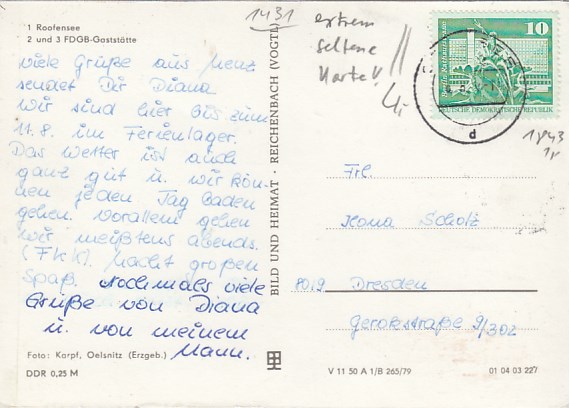 1 Roofensee
2 und 3 FDGB-Gaststätte
1431
extrem
seltene
Karte!
viele Grüße aus Menz
sendet Dir Diana
wir sind hier bis zum
11.8. im Ferienlager.
Das Wetter ist auch
ganz gut u. wir kön-
nen jeden Tag baden
gehen. Vorallem gehen
wir meißtens abends.
(FKK). Macht großen
Spaß. Nochmals viele
Grüße von Diana
u. von meinem
Mann.
Foto: Karpf, Oelsnitz (Erzgeb.)
DDR 0,25 M
BILD UND HEIMAT · REICHENBACH (VOGTL)
10
DEUTSCHE DEMOKRATISCHE REPUBLIK
d
1843
Frl.
Ilona Scholz
8019 Dresden
Gerokstraße 9/302
V 11 50 A 1/B 265/79
01 04 03 227